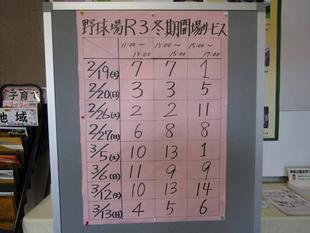 野球場R3冬期開場サービス
11:00~13:00 13:00~15:00 15:00~17:00
2/19(土) 7 7 1
2/20(日) 3 3 5
2/26(土) 2 2 11
2/27(日) 6 8 8
3/5(土) 10 13 1
3/6(日) 11 9 9
3/12(土) 10 13 14
3/13(日) 4 5 6
子育て
地域